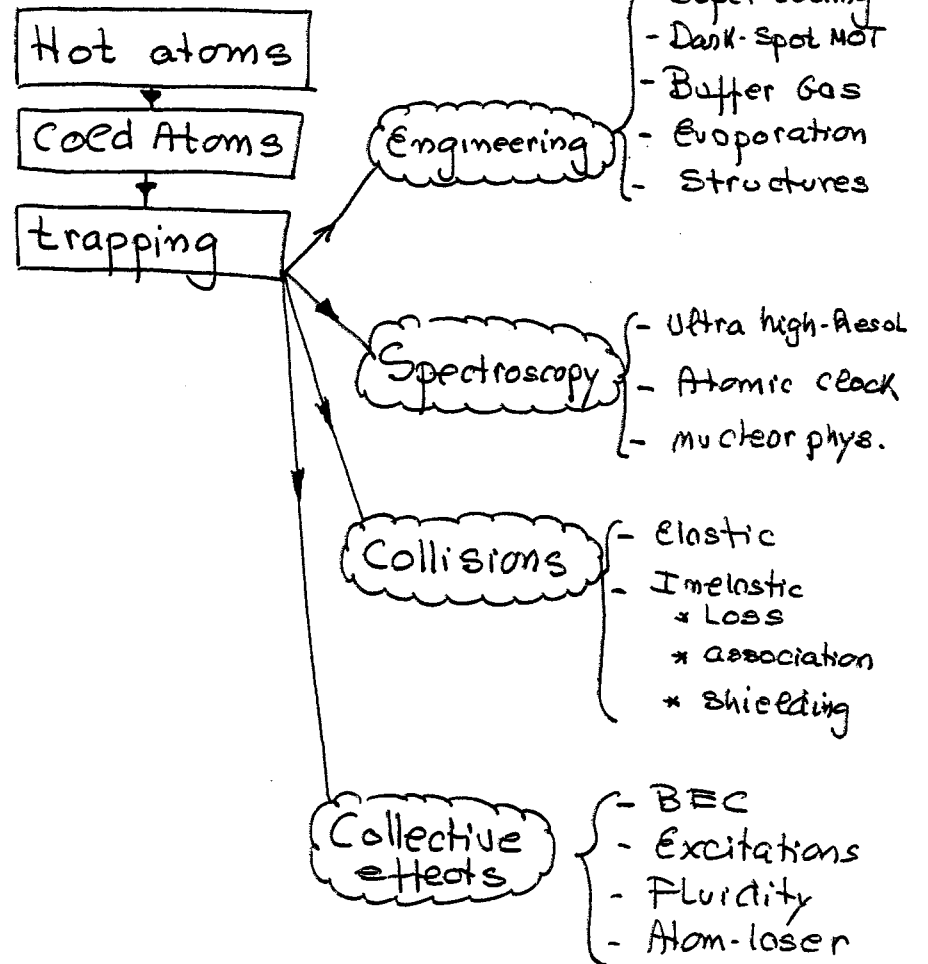 Hot atoms
Cold Atoms
trapping
Engineering
- Dark-Spot MOT
- Buffer Gas
- Evoporation
- Structures
Spectroscopy
- Ultra high-Resol
- Atomic clock
- nuclear phys.
Collisions
- Elastic
- Inelastic
* Loss
* association
* Shielding
Collective
effects
- BEC
- Excitations
- Fluidity
- Atom-laser